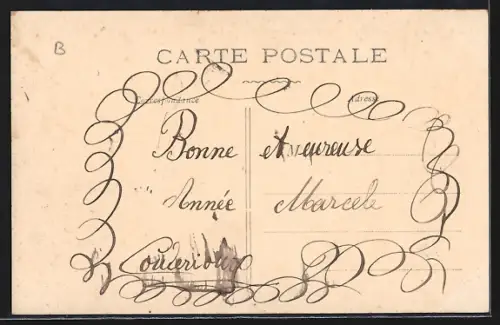 B
CARTE POSTALE
Correspondance
Adresse
Bonne et heureuse
Année Marcele